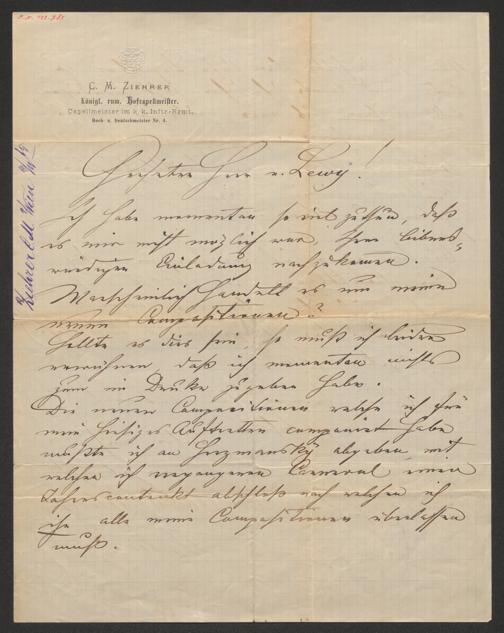 C. M. ZIEHRER
königl. rum. Hofcapellmeister.
Capellmeister im k. k. Inftr.-Regmt.
Hoch- u. Deutschmeister Nr. 4.
Geehrter Herr v. Lewy!
Ich habe momentan so viel zu thun, daß
es mir nicht möglich war, Ihrer liebens-
würdigen Einladung nachzukommen.
Warscheinlich handelt es um meine
neuen Compositionen?
Sollte es dies sein, so muß ich leider
erwähnen, daß ich momentan nichts
zum in Druke zugeben habe.
Die neuen Compositionen welche ich für
mein hiesiges Auftretten componirt habe
mußte ich an Herzmansky abgeben, mit
welchen ich vergangenen Carneval einen
Jahrescontrakt abschloß nach welchen ich
ihm alle meine Compositionen überlassen
muß.